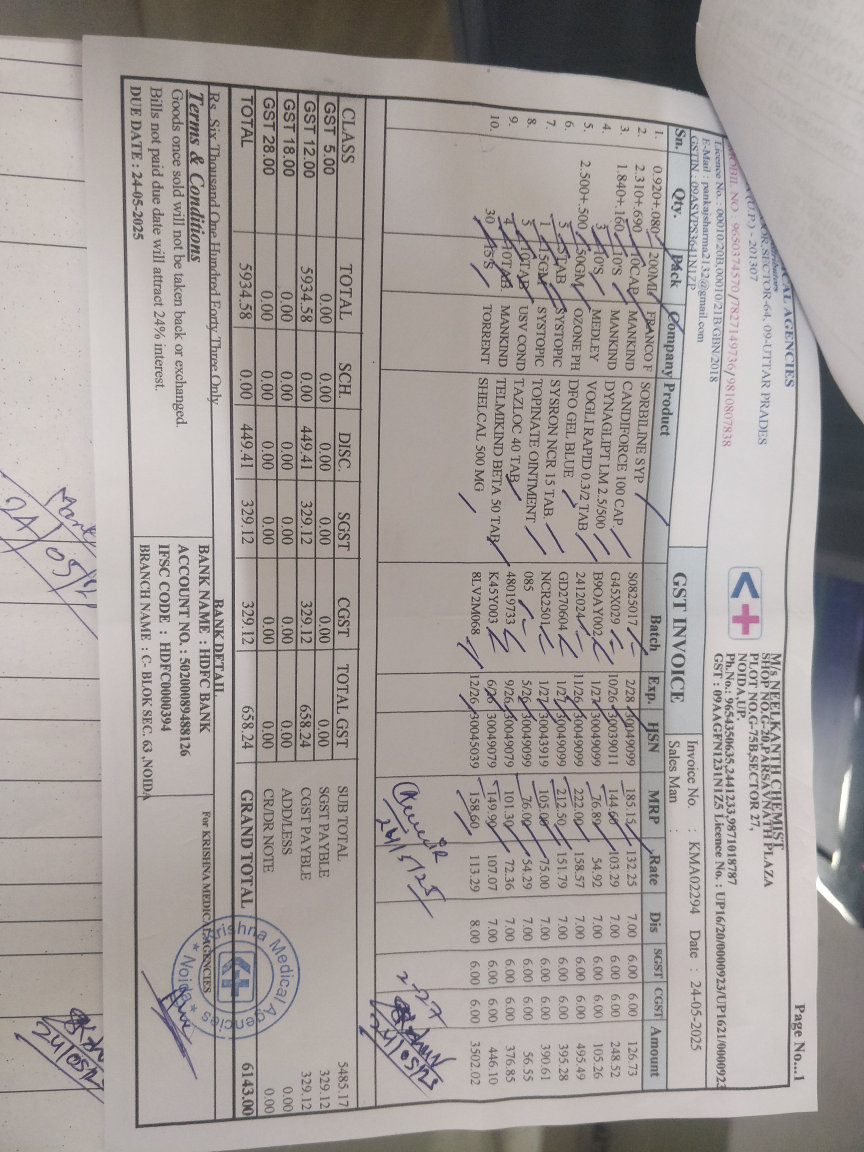 Page No....1
CAL AGENCIES
OOR,SECTOR-64, 09-UTTAR PRADES
(U.P.) - 201307
MOBIL NO : 9650374570/7827149736/9810807838
Licence No. : 00010/20B,00010/21B/GBN/2018
E-Mail : pankajsharma2132@gmail.com
GSTIN : 09ASVPS3641N1ZP
M/s NEELKANTH CHEMIST
SHOP NO.G-20,PARSAVNATH PLAZA
PLOT NO.G-75B,SECTOR 27,
NOIDA,UP.
Ph.No.: 9654350635,2441233,9871018787
GST : 09AAGFN1231N1Z5 Licence No. : UP16/20/0000923/UP1621/0000923
GST INVOICE
Invoice No. : KMA02294 Date : 24-05-2025
Sales Man :
Sn. Qty. Pack Company Product Batch Exp. HSN MRP Rate Dis SGST CGST Amount
1. 0.920+.080 200ML FRANCO F SORBILINE SYP S0825017 2/28 30049099 185.15 132.25 7.00 6.00 6.00 126.73
2. 2.310+.690 10CAP MANKIND CANDIFORCE 100 CAP G45X029 10/26 30039011 144.60 103.29 7.00 6.00 6.00 248.52
3. 1.840+.160 10'S MANKIND DYNAGLIPT LM 2.5/500 B9OAY002 1/27 30049099 76.89 54.92 7.00 6.00 6.00 105.26
4. 3 10'S MEDLEY VOGLI RAPID 0.3/2 TAB 2412024 11/26 30049099 222.00 158.57 7.00 6.00 6.00 495.49
5. 2.500+.500 50GM OZONE PH DFO GEL BLUE GD270604 1/27 30049099 212.50 151.79 7.00 6.00 6.00 395.28
6. 5 5TAB SYSTOPIC SYSRON NCR 15 TAB. NCR2501 1/27 30043919 105.00 75.00 7.00 6.00 6.00 390.61
7. 1 15GM SYSTOPIC TOPINATE OINTMENT 085 5/26 30049099 76.00 54.29 7.00 6.00 6.00 56.55
8. 5 10TAB USV COND TAZLOC 40 TAB 48019733 9/26 30049079 101.30 72.36 7.00 6.00 6.00 376.85
9. 4 10TAB MANKIND TELMIKIND BETA 50 TAB K45Y003 6/26 30049079 149.90 107.07 7.00 6.00 6.00 446.10
10. 30 15'S TORRENT SHELCAL 500 MG 8LV2M068 12/26 30045039 158.60 113.29 8.00 6.00 6.00 3502.02
24/5/25
24/05/25
CLASS TOTAL SCH. DISC. SGST CGST TOTAL GST
GST 5.00 0.00 0.00 0.00 0.00 0.00 0.00
GST 12.00 5934.58 0.00 449.41 329.12 329.12 658.24
GST 18.00 0.00 0.00 0.00 0.00 0.00 0.00
GST 28.00 0.00 0.00 0.00 0.00 0.00 0.00
TOTAL 5934.58 0.00 449.41 329.12 329.12 658.24
SUB TOTAL 5485.17
SGST PAYBLE 329.12
CGST PAYBLE 329.12
ADD/LESS 0.00
CR/DR NOTE 0.00
GRAND TOTAL 6143.00
Rs. Six Thousand One Hundred Forty Three Only
Terms & Conditions
Goods once sold will not be taken back or exchanged.
Bills not paid due date will attract 24% interest.
DUE DATE : 24-05-2025
BANK DETAIL
BANK NAME : HDFC BANK
ACCOUNT NO. : 50200089488126
IFSC CODE : HDFC0000394
BRANCH NAME : C- BLOK SEC. 63 ,NOIDA
For KRISHNA MEDICAL AGENCIES
Krishna Medical Agencies
* Noida *
24/05/25